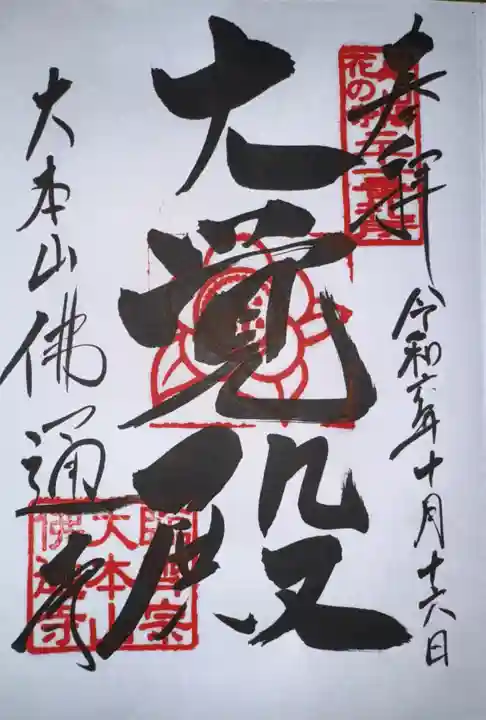 奉拝
令和六年十月十六日
花の
大覚殿
大本山佛通寺
臨済宗
大本山
佛通寺